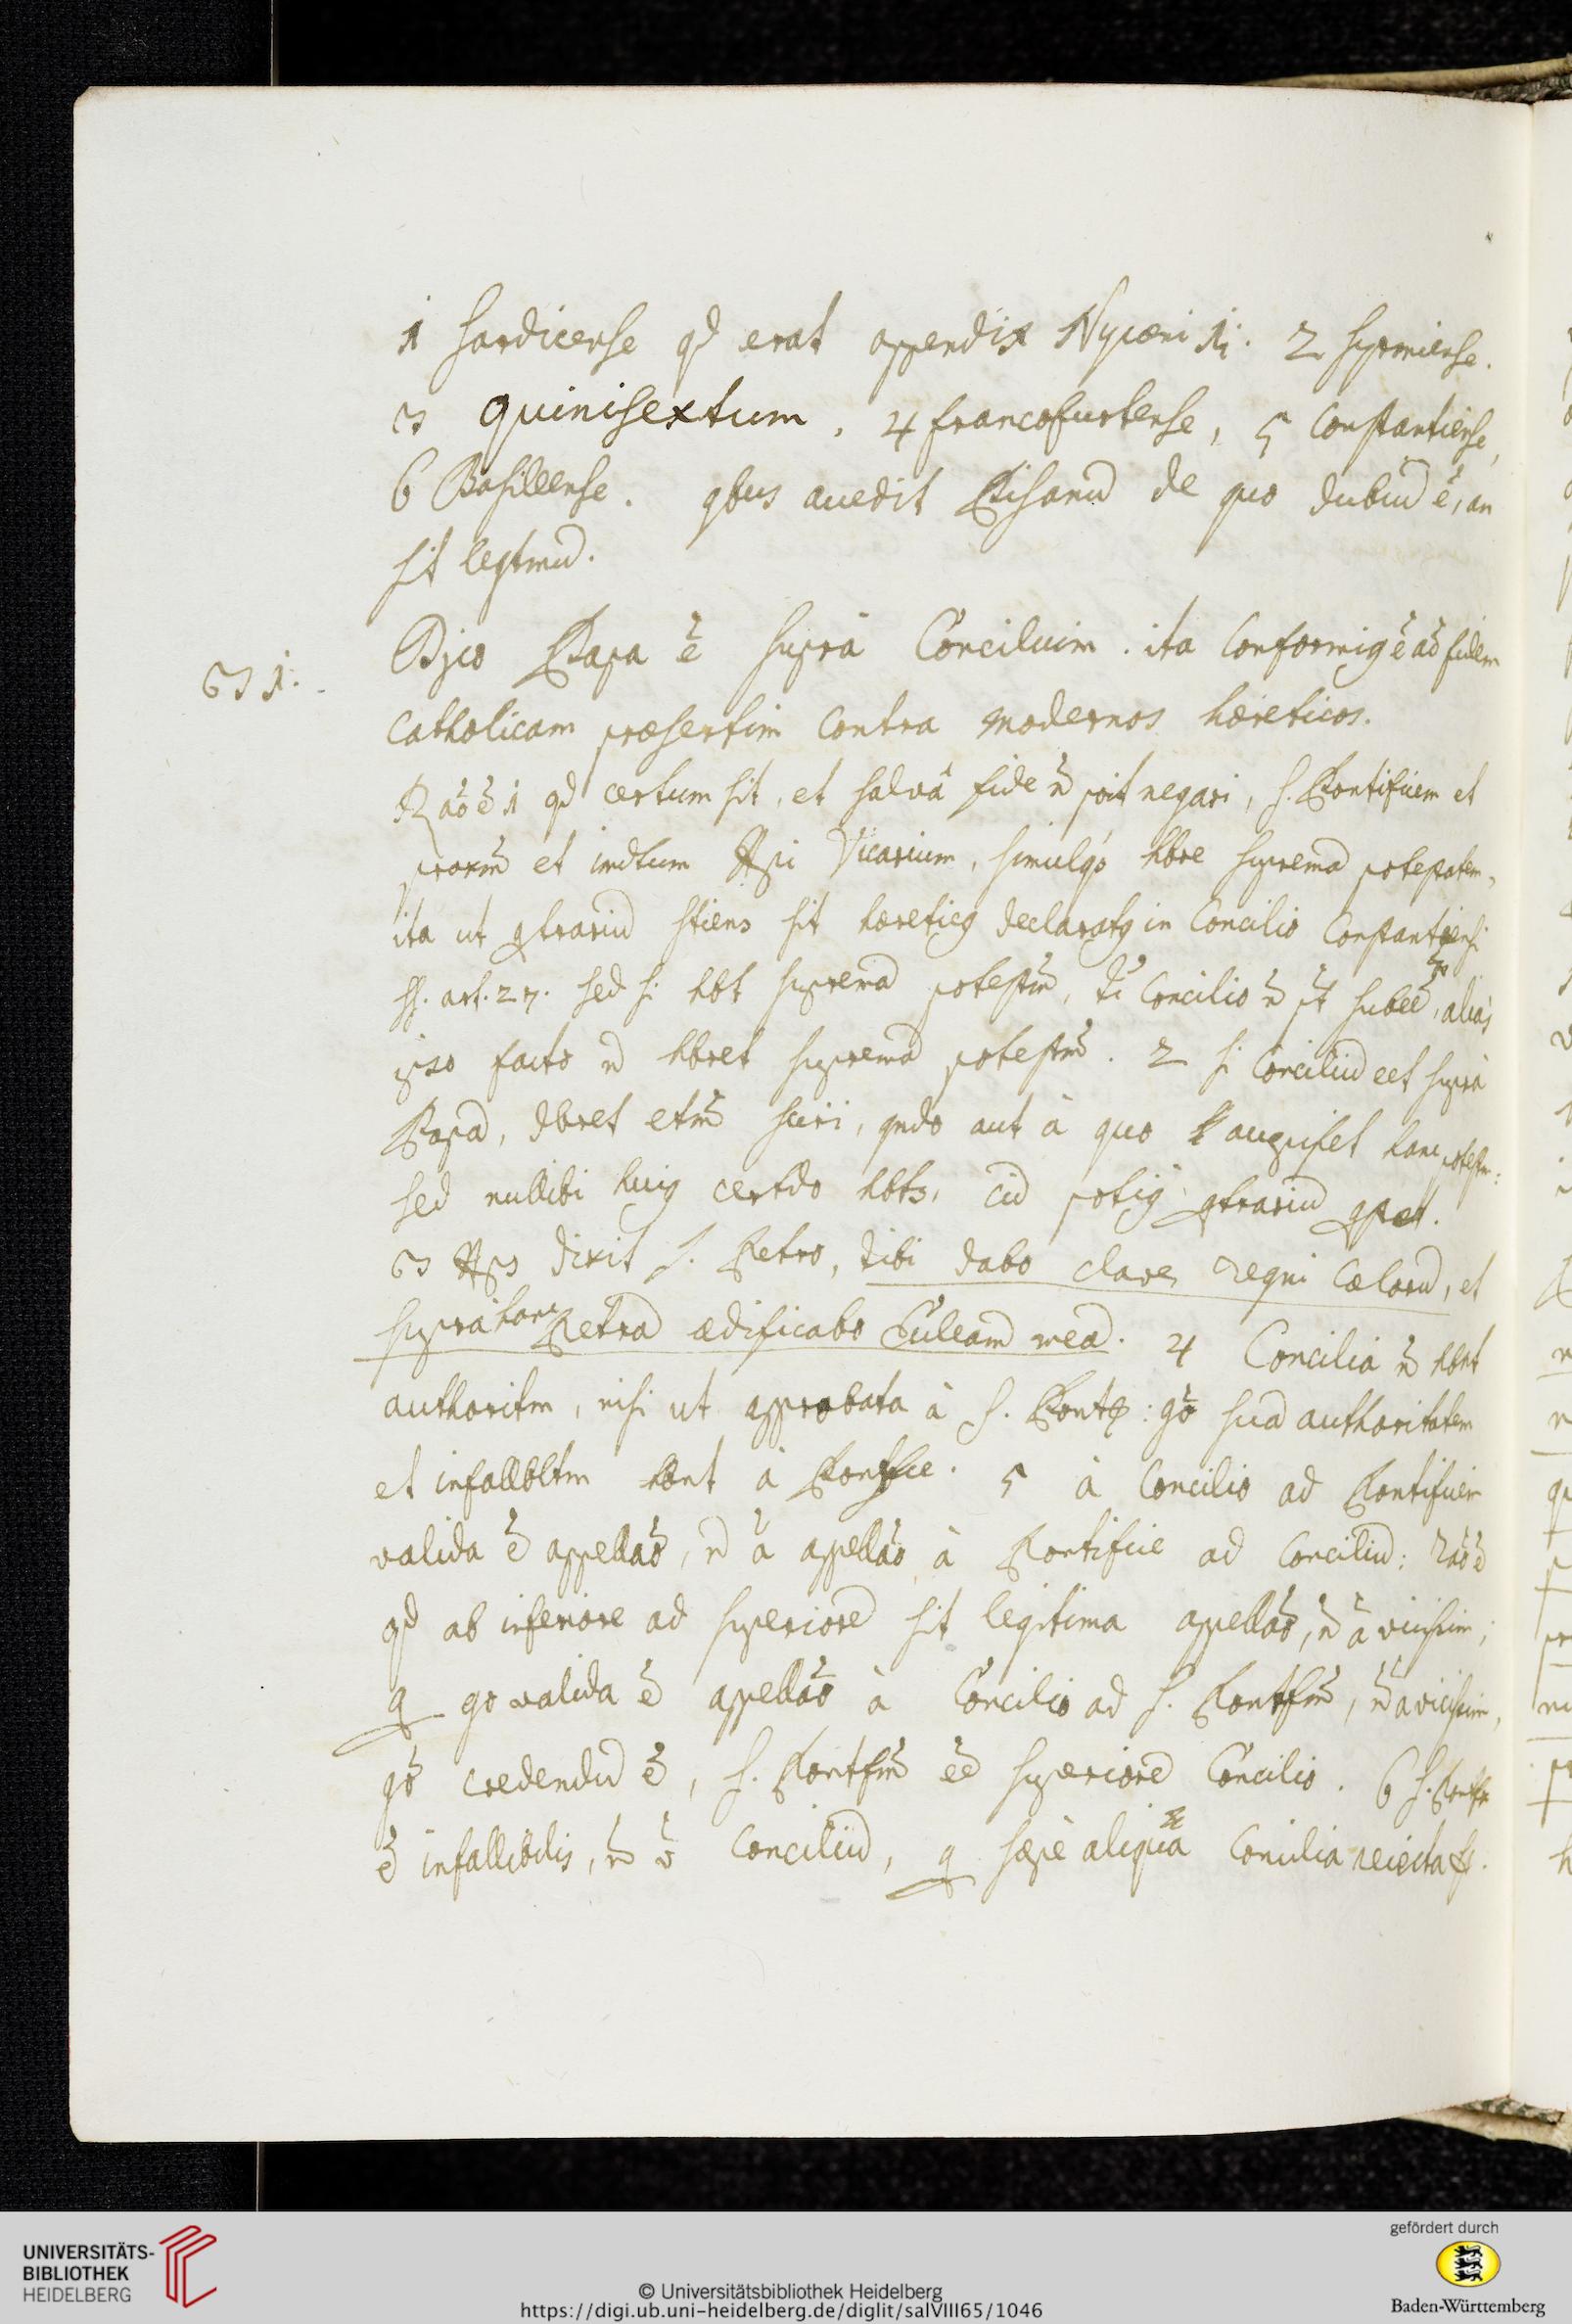 1 Sardicense qd erat appendix Nycæni 1i. 2 Syrmiense.
3 Quinisextum, 4 francofurtense, 5 Constantiense,
6 Basileense. qbus accedit Pisanū de quo dubiū ē, an
sit legtmū.
31.
Dico Papa ē supra Concilium. ita Conformig ē ad fidem
Catholicam præsertim Contra modernos hæreticos.
Rāō ē 1 qd certum sit, et salvâ fide n̄ poit negari, S. Pontificem et
proxm̄ et imdtum Xpi Vicarium, simulq̄ hbre supremā potestatem,
ita ut qtrariū stiens sit hæreticg declaratg in Concilio Constantiensi
ss. art. 27. sed si hbt supremā potestm̄, Concilio n̄ pt subee, aliàs
ipso facto n̄ hbret supremā potestm̄. 2 si Conciliū eet suprà
Papā, dbret etm̄ sciri, qndo aut à quo hanc potestm:
sed nullibi huig certdo hbts, potig qtrariū qstat.
3 Xps dixit S. Petro, tibi dabo claves regni Cœlorū, et
supra hanc Petrā ædificabo Ecleam meā. 4 Concilia n̄ hbnt
authoritm, nisi ut approbata à S. Pontce: gō suā authoritatem
et infallbltm hbnt à Pontfice. 5 à Concilio ad Pontificem
valida ē appellāō, n̄ ā appellāō à Pontifice ad Conciliū: rāō ē
qd ab inferiore ad superiorē sit legitima appellāō, n̄ ā vicissim;
q go valida ē appellāō à Concilio ad S. Pontfm̄, n̄ a vicissim,
gō credendū ē, S. Pontfm̄ eē superiorē Concilio. 6 S. Pontfx
ē infallibilis, n̄ v̄ Conciliū, q sæpè aliqua Concilia reiecta st.
UNIVERSITÄTS-
BIBLIOTHEK
HEIDELBERG
© Universitätsbibliothek Heidelberg
https://digi.ub.uni-heidelberg.de/diglit/salVIII65/1046
gefördert durch
Baden-Württemberg